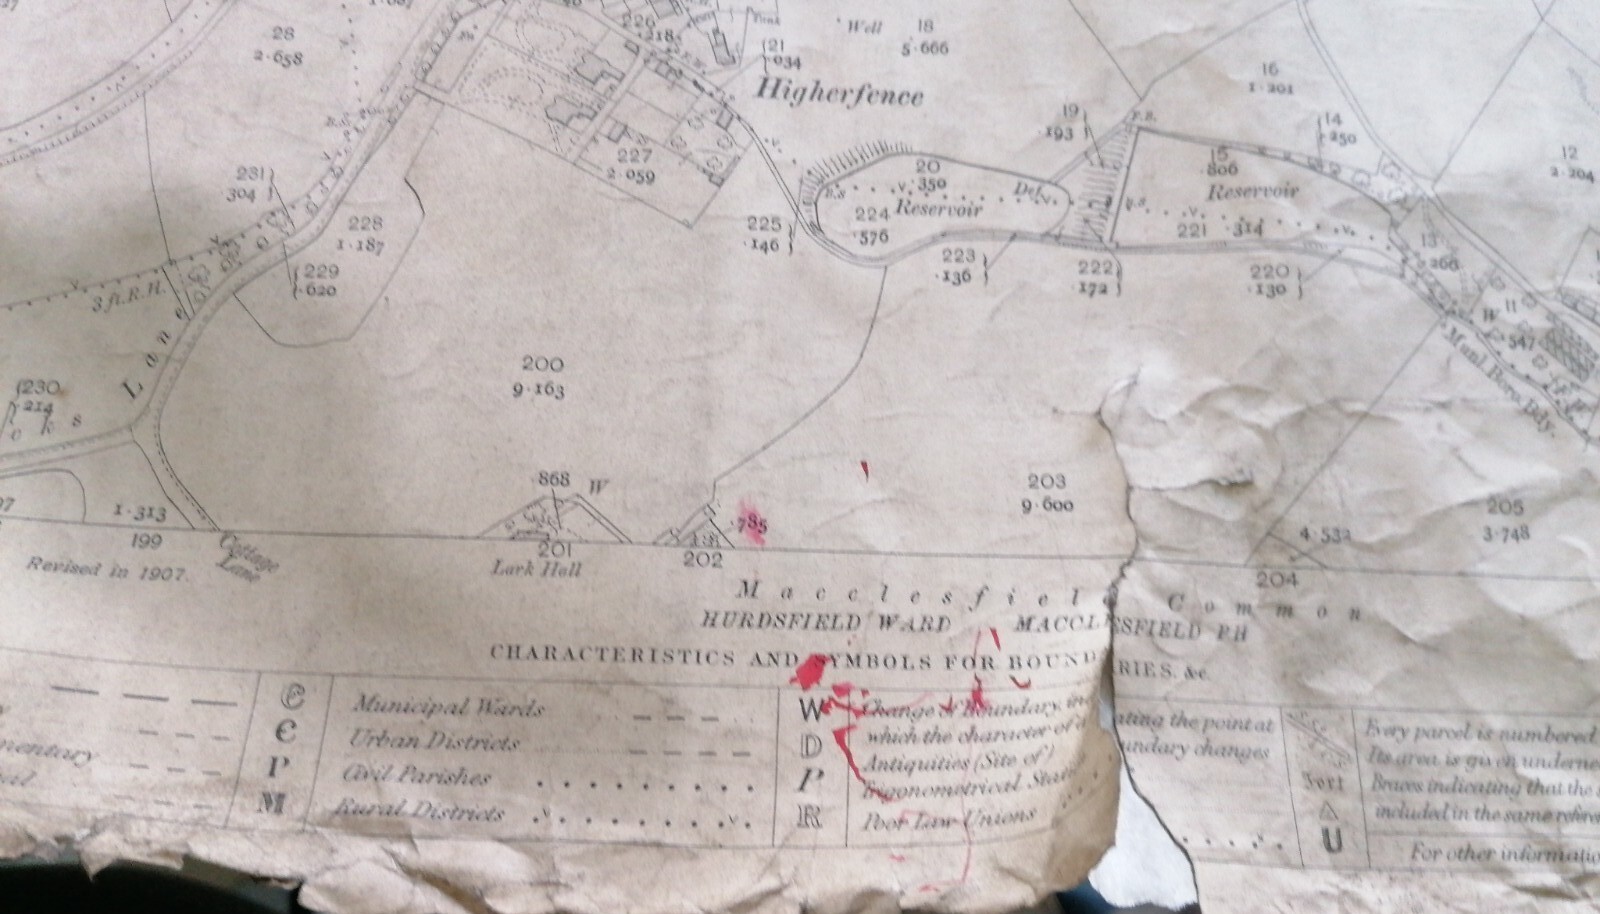 28
2·658
226
·218
Tank
Well
18
5·666
(21
·034
Higherfence
16
1·201
19
·193
F.B.
14
·250
12
2·204
15
·806
Reservoir
231
·304
227
2·059
20
·350
Def.
B.S
224
Reservoir
·576
225
·146
228
1·187
221 ·314
13
·266
229
·620
223
·136
222
·172
220
·130
3 ft. R.H.
Lane
W
11
·547
Munl. Boro. Bdy.
200
9·163
(230
·214
c k s
868
W
203
9·600
205
3·748
97
1·313
785
4·532
199
201
202
204
Cottage
Lane
Lark Hall
Revised in 1907.
Macclesfield Common
HURDSFIELD WARD MACCLESFIELD PH
CHARACTERISTICS AND SYMBOLS FOR BOUNDARIES. &c
C
Municipal Wards
W
Change of Boundary, in
ating the point at
Every parcel is numbered
C
Urban Districts
D
which the character of a
undary changes
Its area is given underne
mentary
P
Civil Parishes
P
Antiquities (Site of)
Fort
Braces indicating that the
al
M
Rural Districts
R
Trigonometrical Stat
included in the same refere
Poor Law Unions
U
For other informatio